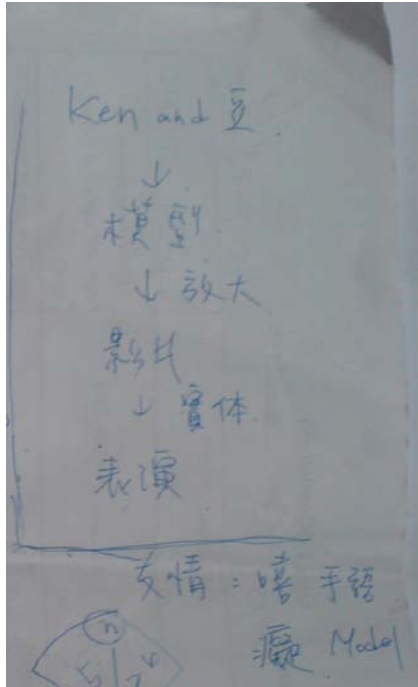 Ken and 豆
↓
模型
↓ 放大
影片
↓ 實体
表演
友情 : 嘻 手語
癡 Model
n